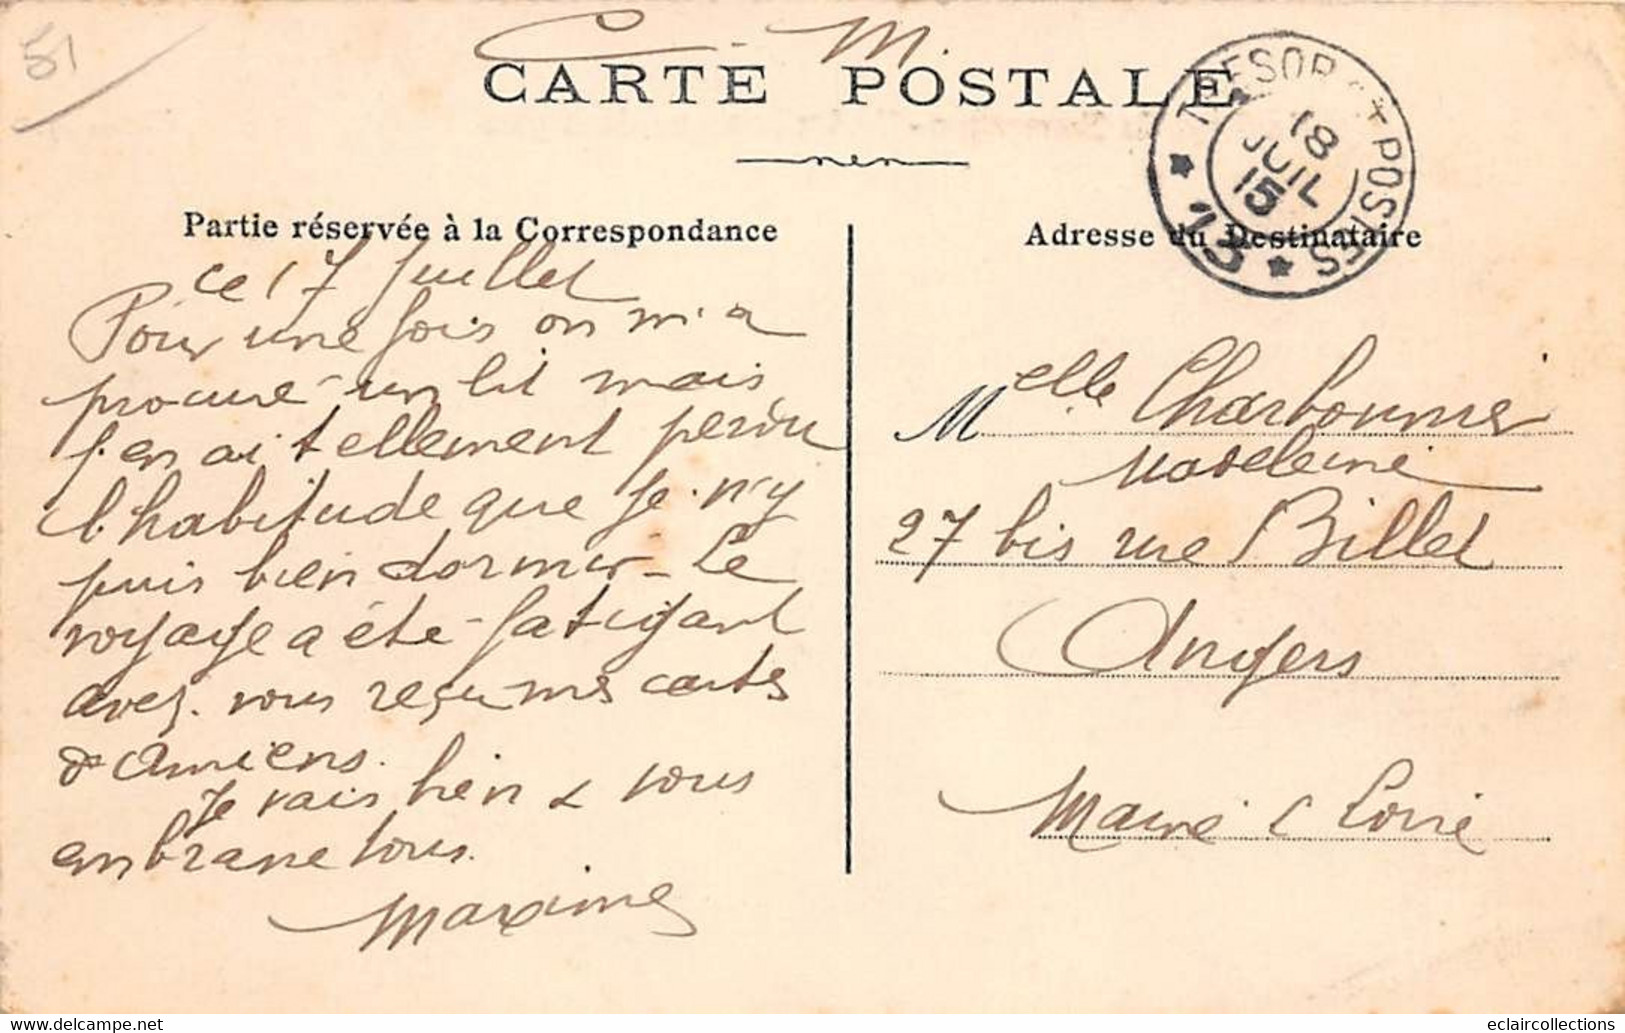 51
C. M.
CARTE POSTALE
TRESOR ET POSTES
18
JUIL
15
* 13 *
Partie réservée à la Correspondance
ce 17 Juillet
Pour une fois on m'a
procuré un lit mais
j'en ai tellement perdu
l'habitude que je n'y
puis bien dormir - Le
voyage a été fatigant
avez-vous reçu mes cartes
d'Amiens.
Je vais bien & vous
embrasse tous.
Maxime
Adresse du Destinataire
Melle Charbonnier
Madeleine
27 bis rue Billet
Angers
Maine & Loire
eclaircollections / Delcampe.net